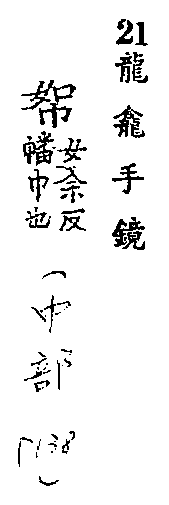 21龍龕手鏡
帤
女余反
幡巾也
(巾部
P138)